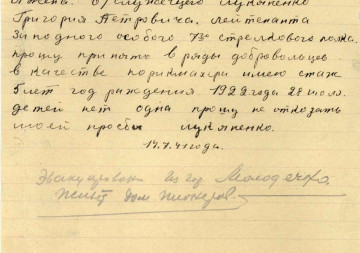 Я жена в/служащего Лукьяненко
Григория Петровича, лейтенанта
Западного особого 73го стрелкового полка.
прошу принять в ряды добровольцев
в качестве парикмахера имею стаж
5 лет год раждения 1922 года 28 июля.
детей нет одна прошу не отказать
моей просьбы Лукяненко.
14.7.41 года.
Эвакуирован из гор Молодечко.
Живет Дом Пионеров